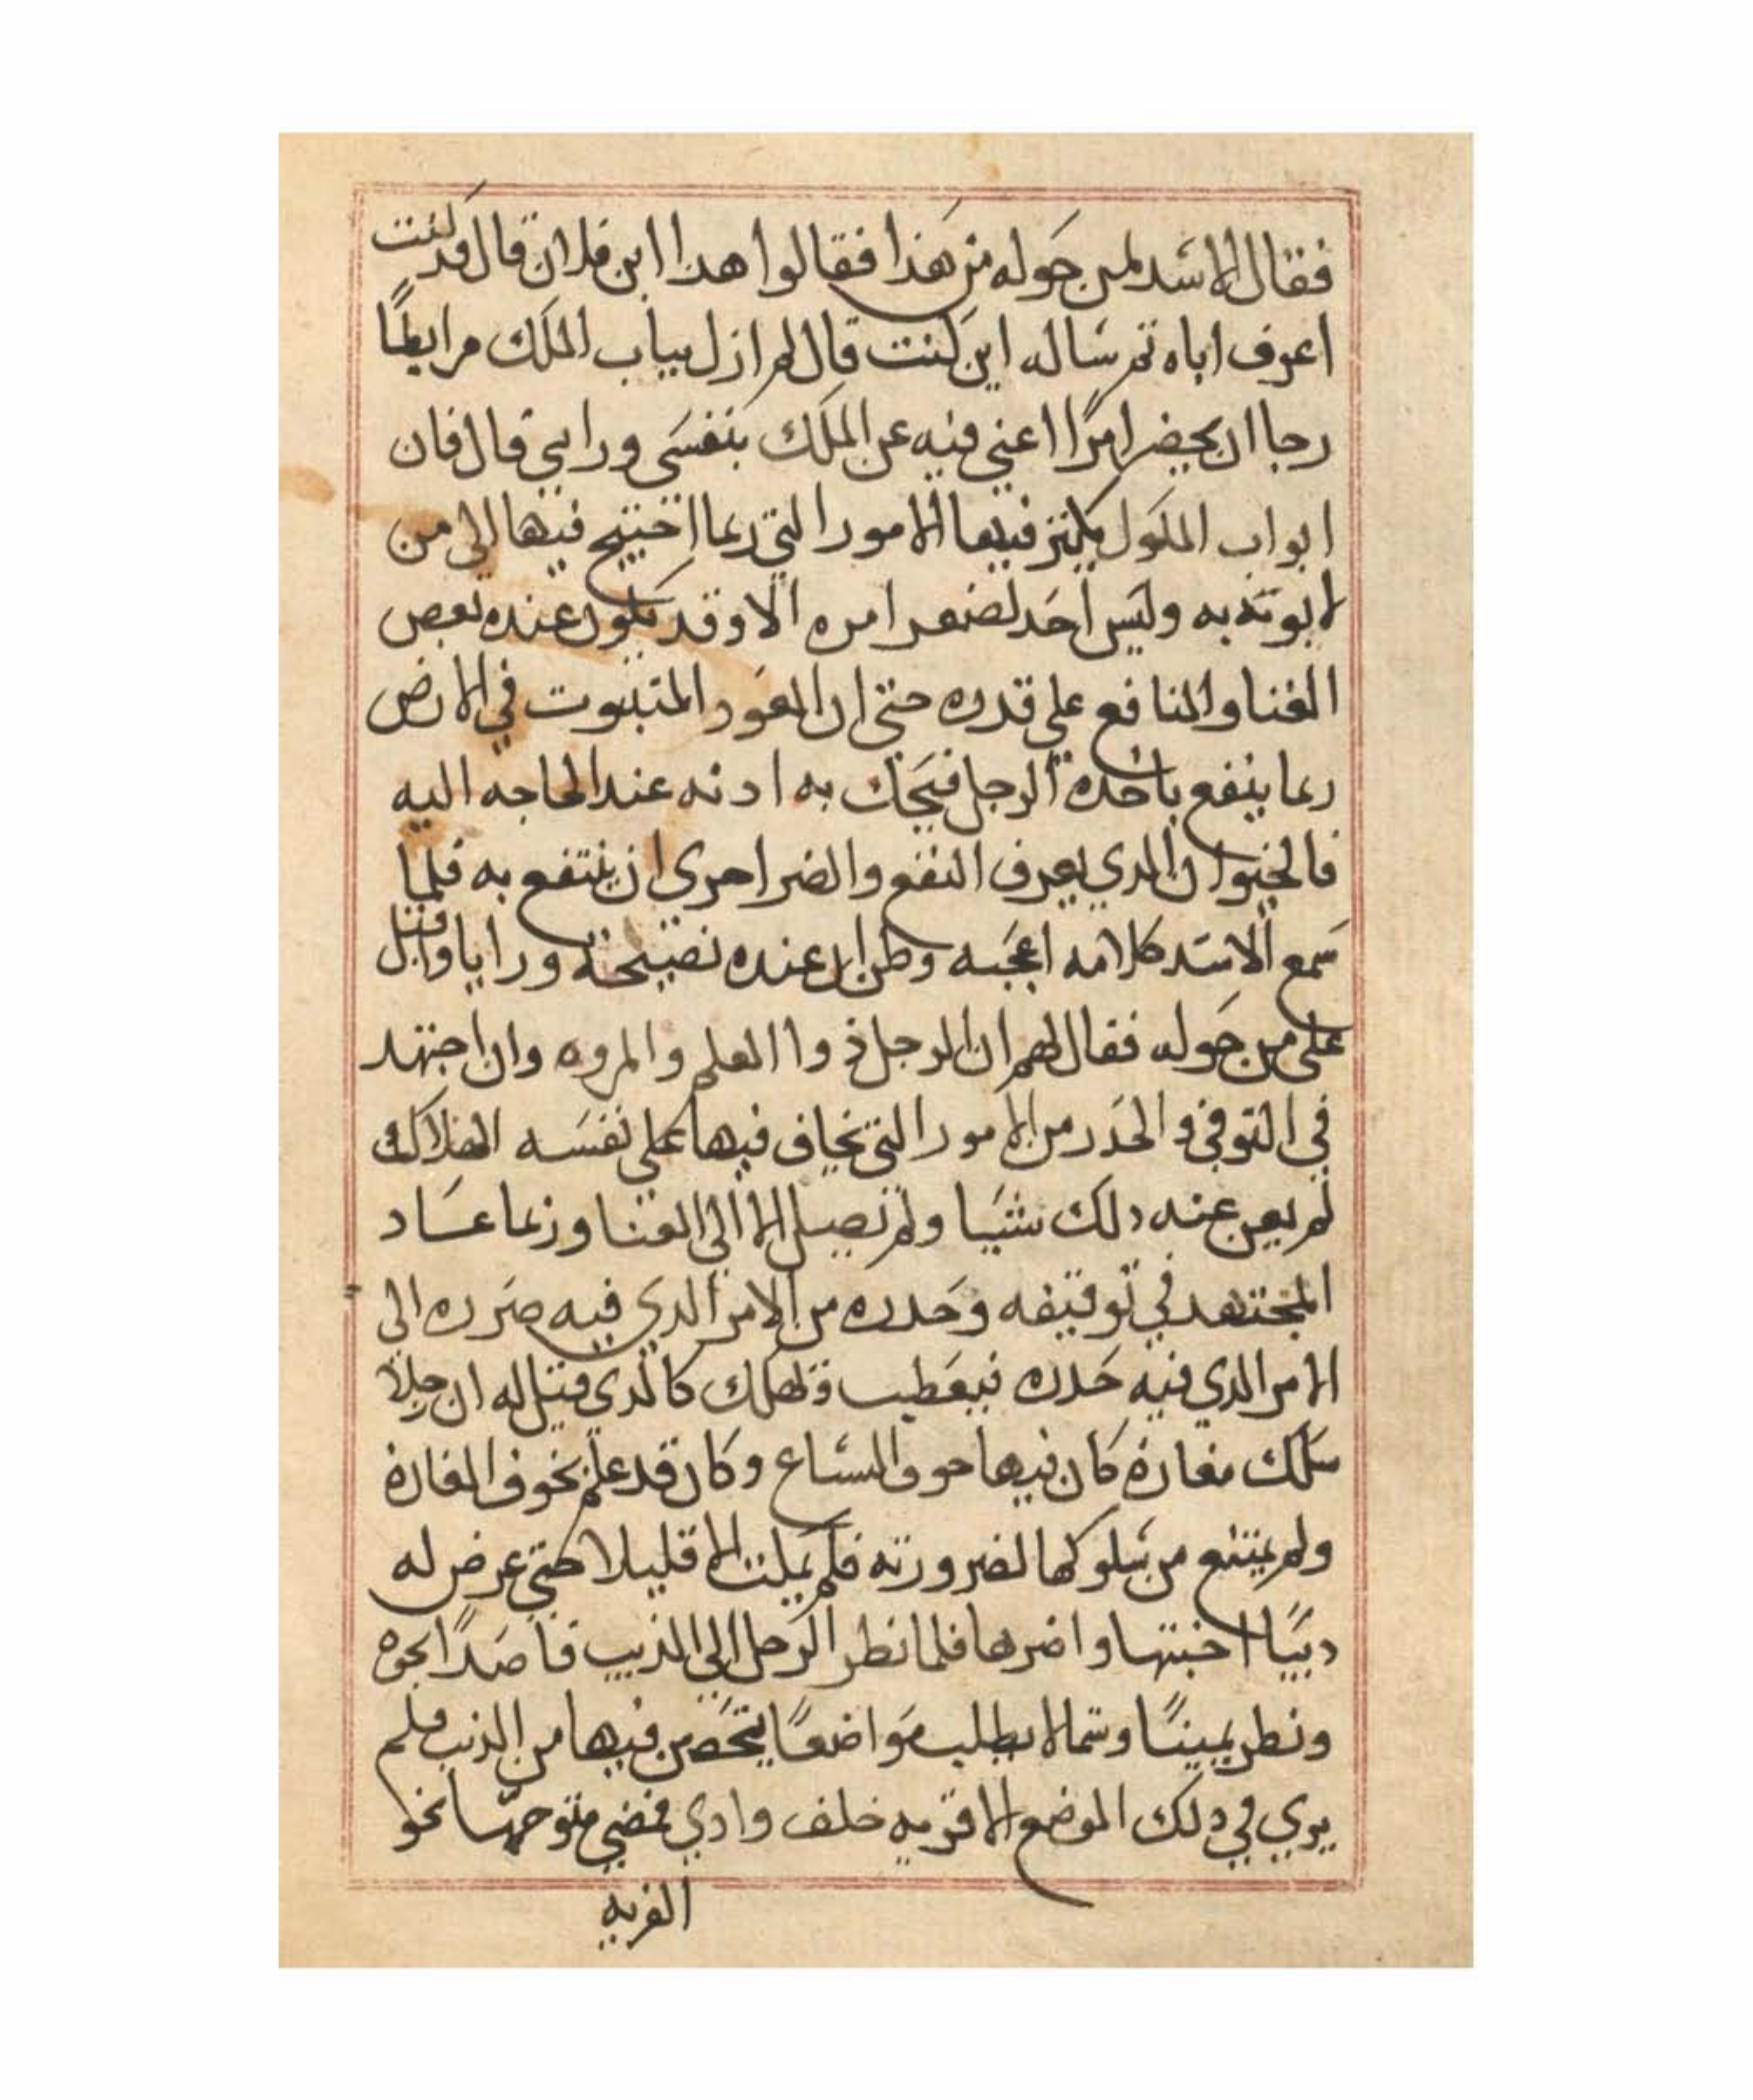 فقال الاسد لمن حوله من هذا فقالوا هدا ابن فلان قال قد كنت
اعرف اباه ثم ساله اين كنت قال لم ازل بباب الملك مرابطًا
رجا ان يحضر امرًا اعني فيه عن الملك بنفسي ورايي قال فان
ابواب الملوك يكثر فيها الامور التي ربما احتيج فيها الى من
لا يوبه به وليس احد لصغر امره الا وقد يكون عنده بعض
الغنا والمنافع على قدره حتى ان العود المتبوت في الارض
ربما ينفع ياخده الرجل فيحك به ادنه عند الحاجه اليه
فالحيوان الدي يعرف النفع والضر احرى ان ينتفع به فلما
سمع الاسد كلامه اعجبه وظن ان عنده نصيحة ورايا واقبل
على من حوله فقال لهم ان الرجل ذوا العلم والمروه وان اجتهد
في التوقي والحدر من الامور التي يخاف فيها على نفسه الهلاك
لم يغن عنه دلك شيا ولم تصيل الا الى الفنا وربما عاد
المجتهد في توقيفه وحدره من الامر الدي فيه ضرره الى
الامر الدي فيه حدره فيعطب وتهلك كالدي قيل له ان رجلا
سلك مفازة كان فيها خوف السباع وكان قد علم بخوف المفازة
ولم يمتنع من سلوكها لضرورته فلم يملث الا قليلا حتى عرض له
ديبًا اخبتها واضرها فلما نظر الرجل الى الذيب قاصدًا نحوه
ونظر يمينًا وشمالا يطلب مواضعًا يتحصن فيها من الذيب فلم
يرى في دلك الموضع الا قريه خلف وادي فمضى متوجهًا نحو
القريه